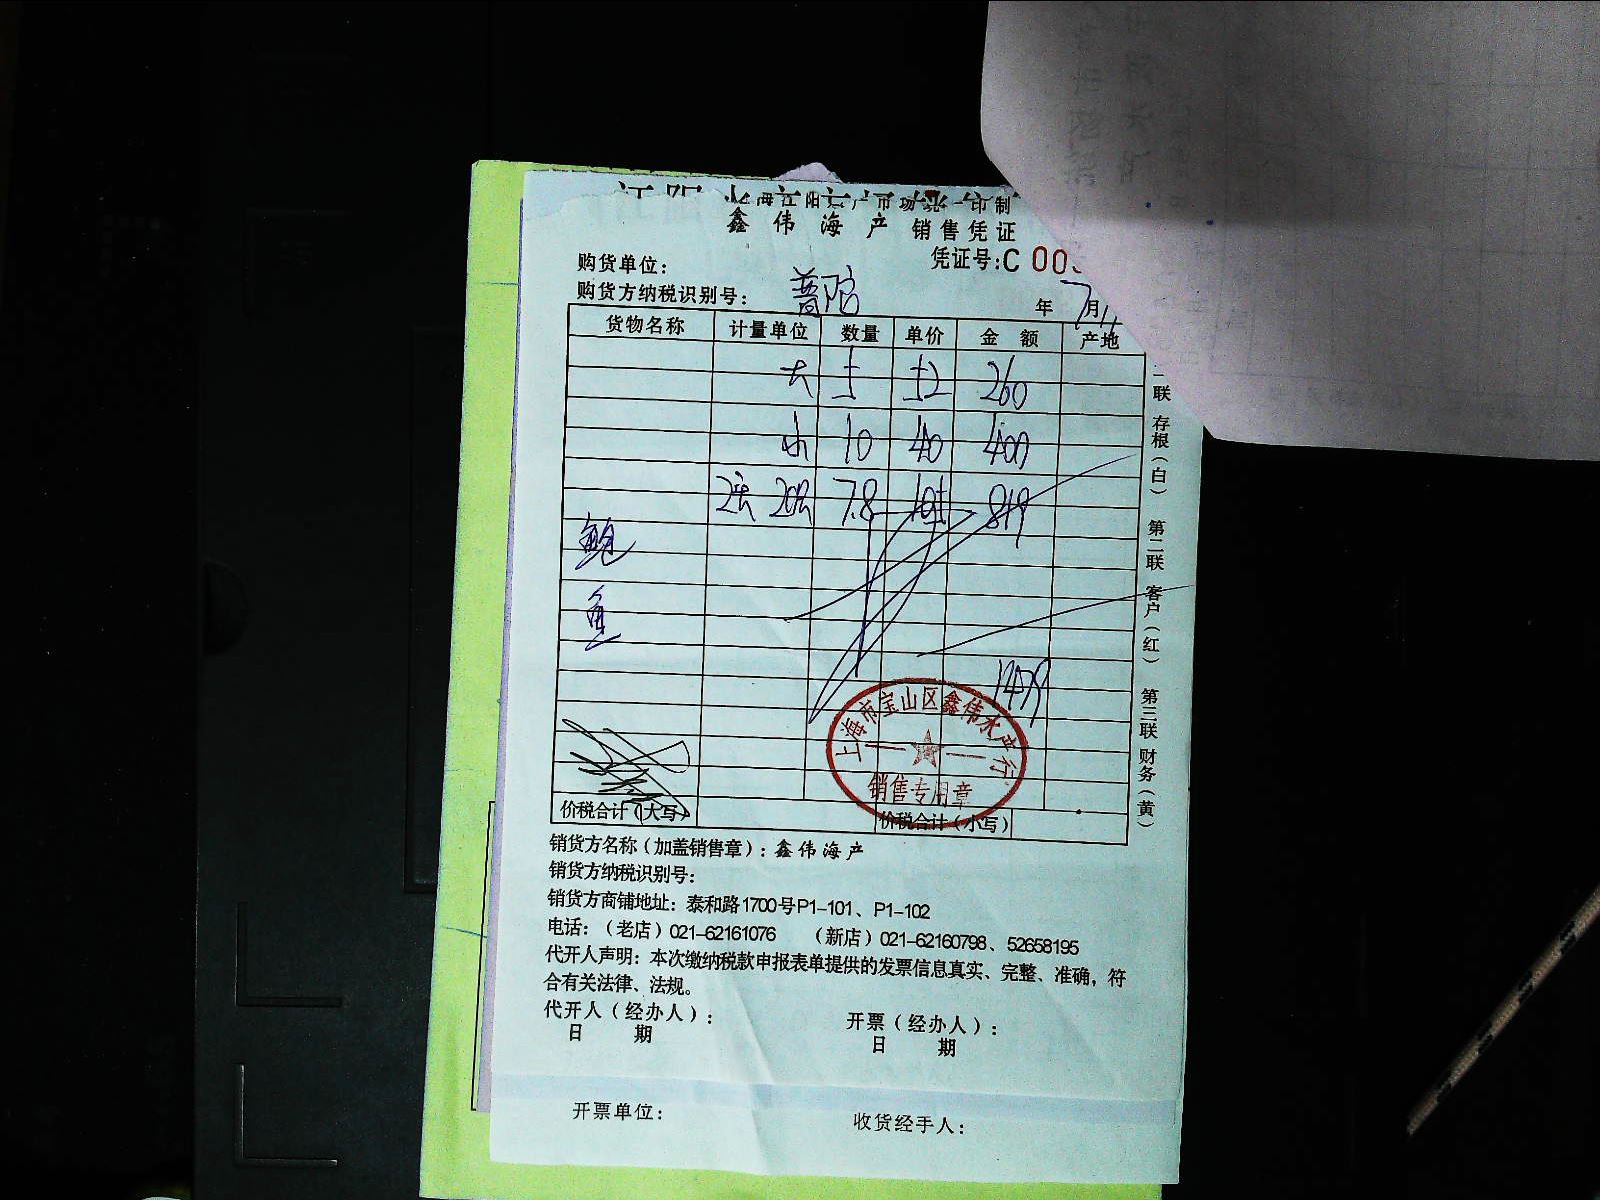 海江阳水产市场统一印制
鑫伟海产 销售凭证
凭证号:C 00
购货单位:
普陀
购货方纳税识别号:
年 7月11
货物名称 计量单位 数量 单价 金额 产地
大 5 52 260
小 10 40 400
7.8 105 819
鲍
鱼
1479
上海市宝山区鑫伟水产行
销售专用章
价税合计(大写) 价税合计(小写)
联 存根(白) 第二联 客户(红) 第三联 财务(黄)
销货方名称(加盖销售章):鑫伟海产
销货方纳税识别号:
销货方商铺地址:泰和路1700号P1-101、P1-102
电话:(老店)021-62161076 (新店)021-62160798、52658195
代开人声明:本次缴纳税款申报表单提供的发票信息真实、完整、准确,符
合有关法律、法规。
代开人(经办人): 开票(经办人):
日 期 日 期
开票单位: 收货经手人: